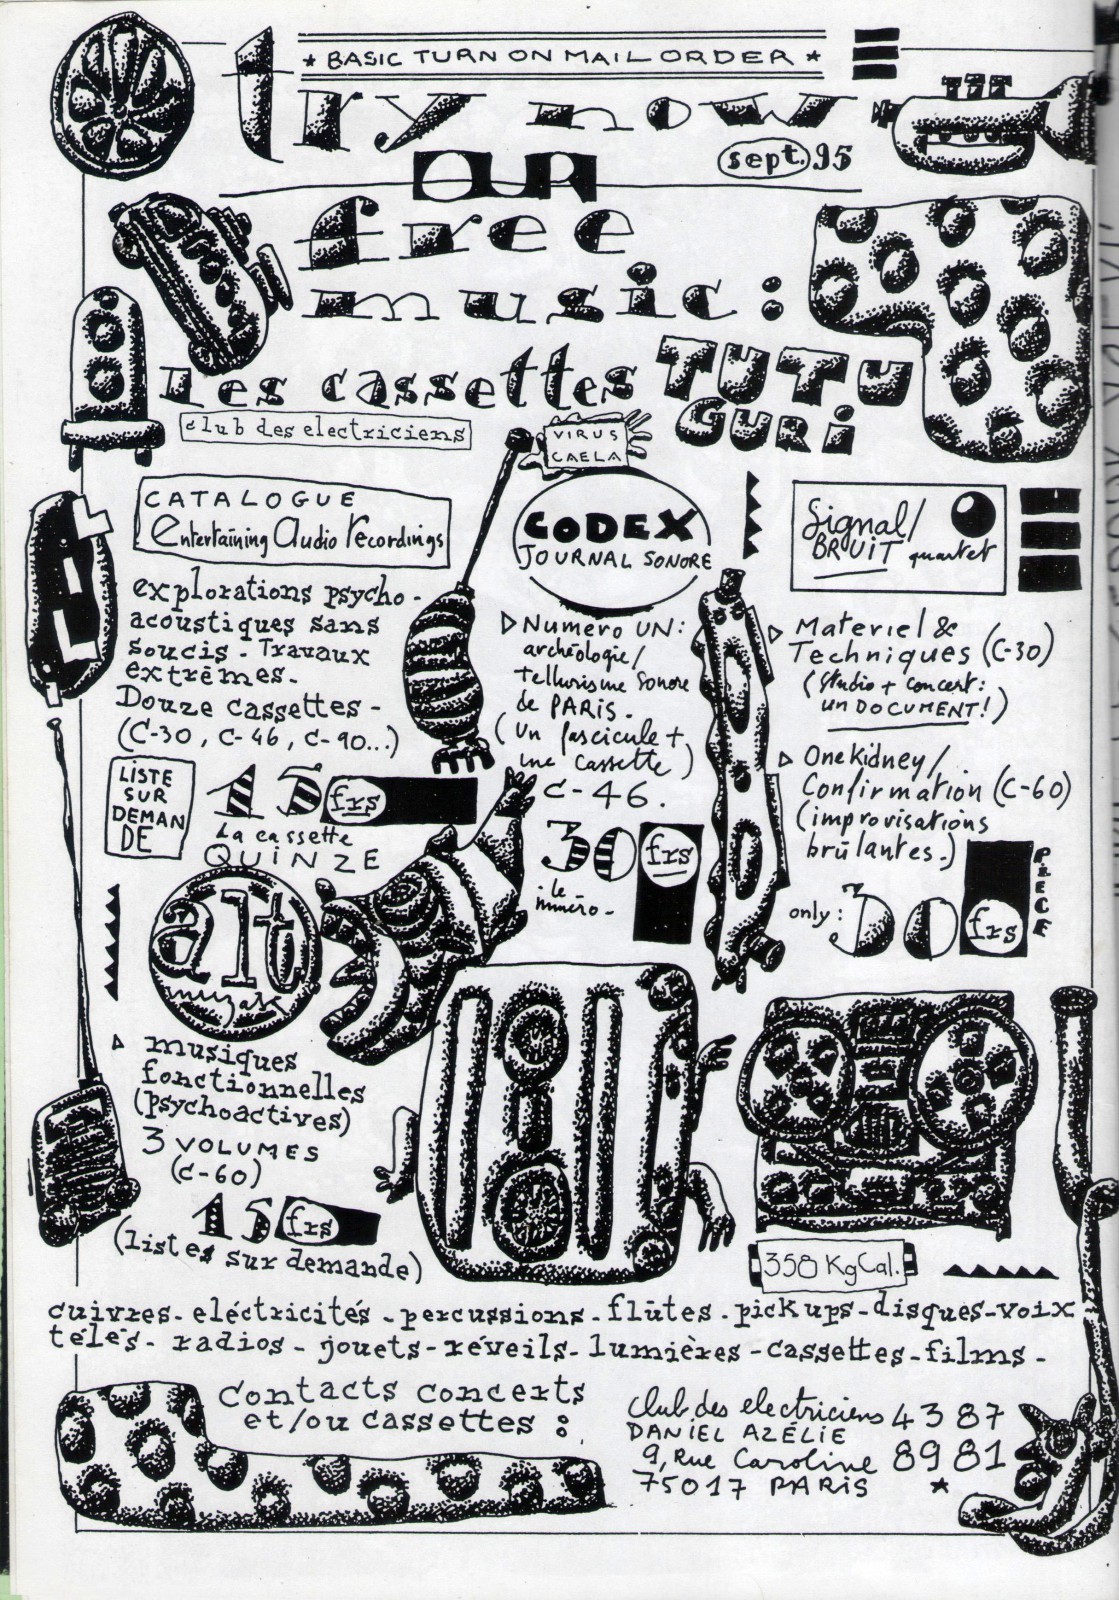 ★ BASIC TURN ON MAIL ORDER ★
try now
sept. 95
OUR
free
music :
Les cassettes TUTU
GURi
club des electriciens
VIRUS
CAELA
CATALOGUE
Entertaining Audio recordings
explorations psycho-
acoustiques sans
soucis - Travaux
extrêmes.
Douze cassettes -
(C-30, C-46, C-90...)
LiSTE
SUR
DEMAN
DE
15 frs
La cassette
QUiNZE
CODEX
JOURNAL SONORE
Numero UN :
archéologie/
tellurisme Sonore
de PARiS.
(Un fascicule +
une cassette)
C-46.
30 frs
le
numéro -
Signal/
BRUiT quartet
Materiel &
Techniques (C-30)
(studio + concert :
un DOCUMENT !)
OneKidney/
Confirmation (C-60)
(improvisations
brûlantes.)
only : 30 frs
PiECE
alt
muzak
musiques
fonctionnelles
(psychoactives)
3 VOLUMES
(C-60)
15 frs
(listes sur demande)
358 KgCal.
cuivres - eléctricités - percussions - flûtes - pickups - disques - voix
télés - radios - jouets - réveils - lumières - cassettes - films -
Contacts concerts
et/ou cassettes :
club des electriciens 43 87
DANiEL AZÉLiE 89 81
9, Rue Caroline
75017 PARiS ★